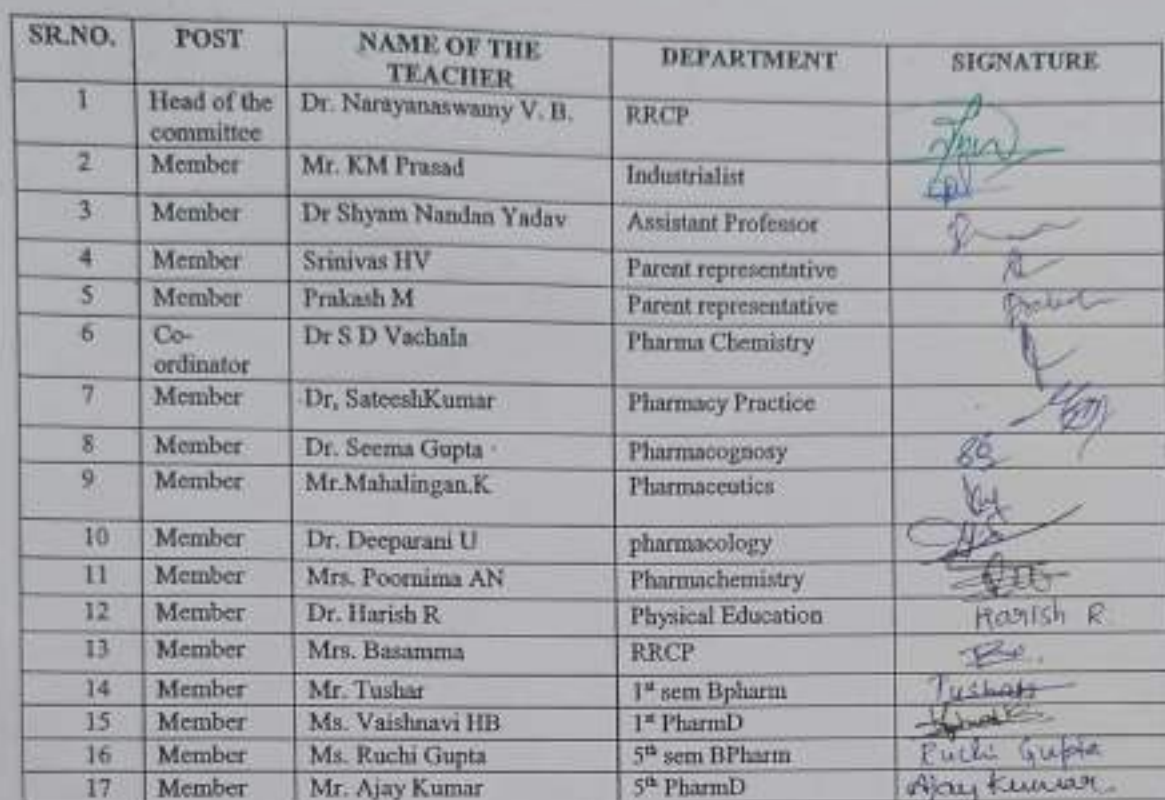 SR.NO. POST NAME OF THE TEACHER DEPARTMENT SIGNATURE
1 Head of the committee Dr. Narayanaswamy V. B. RRCP
2 Member Mr. KM Prasad Industrialist
3 Member Dr Shyam Nandan Yadav Assistant Professor
4 Member Srinivas HV Parent representative
5 Member Prakash M Parent representative
6 Co-ordinator Dr S D Vachala Pharma Chemistry
7 Member Dr, SateeshKumar Pharmacy Practice
8 Member Dr. Seema Gupta Pharmacognosy
9 Member Mr.Mahalingan.K Pharmaceutics
10 Member Dr. Deeparani U pharmacology
11 Member Mrs. Poornima AN Pharmachemistry
12 Member Dr. Harish R Physical Education Harish R
13 Member Mrs. Basamma RRCP
14 Member Mr. Tushar 1st sem Bpharm Tushar
15 Member Ms. Vaishnavi HB 1st PharmD
16 Member Ms. Ruchi Gupta 5th sem BPharm Ruchi Gupta
17 Member Mr. Ajay Kumar 5th PharmD Ajay Kumar.